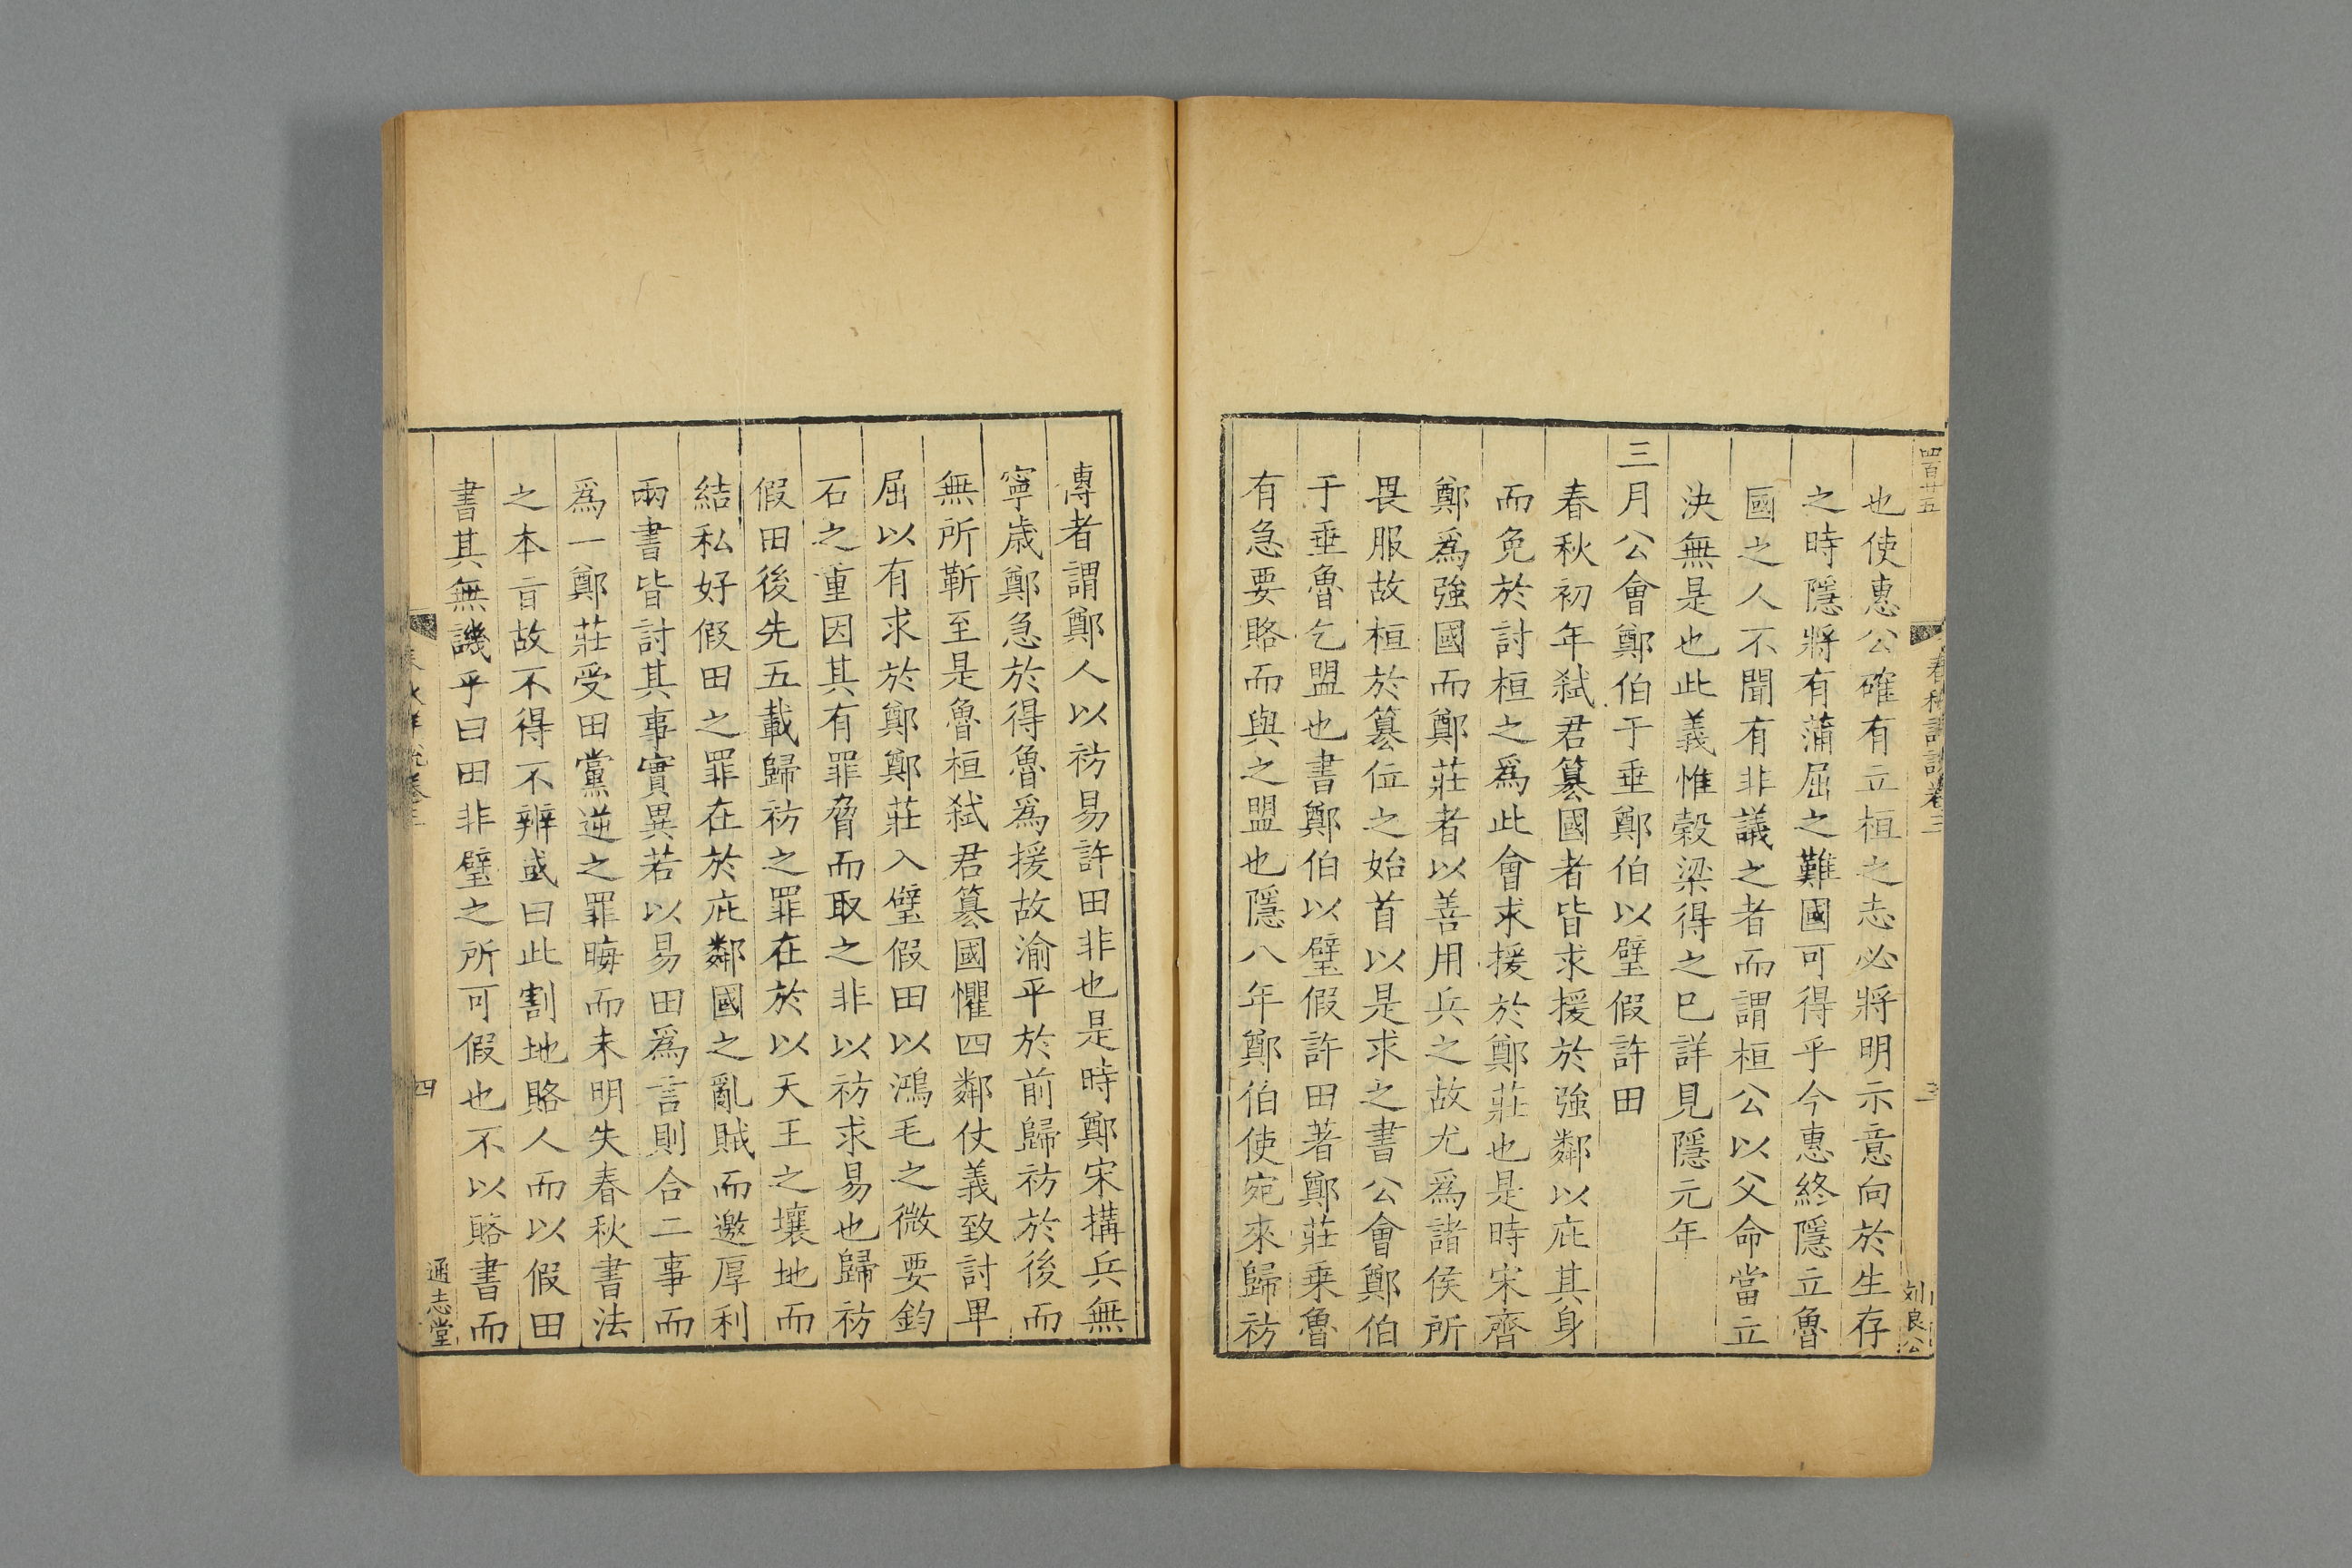 四百廿五
春秋詳說卷三
三
刘良公
也使惠公確有立桓之志必將明示意向於生存
之時隱將有蒲屈之難國可得乎今惠終隱立魯
國之人不聞有非議之者而謂桓公以父命當立
決無是也此義惟榖梁得之巳詳見隱元年
三月公會鄭伯于垂鄭伯以璧假許田
春秋初年弑君簒國者皆求援於強鄰以庇其身
而免於討桓之爲此會求援於鄭莊也是時宋齊
鄭爲強國而鄭莊者以善用兵之故尤爲諸侯所
畏服故桓於簒位之始首以是求之書公會鄭伯
于垂魯乞盟也書鄭伯以璧假許田著鄭莊乗魯
有急要賂而與之盟也隱八年鄭伯使宛來歸祊
傳者謂鄭人以祊易許田非也是時鄭宋搆兵無
寧歳鄭急於得魯爲援故渝平於前歸祊於後而
無所靳至是魯桓弑君簒國懼四鄰仗義致討卑
屈以有求於鄭鄭莊入璧假田以鴻毛之微要鈞
石之重因其有罪脅而取之非以祊求易也歸祊
假田後先五載歸祊之罪在於以天王之壤地而
結私好假田之罪在於庇鄰國之亂賊而邀厚利
兩書皆討其事實異若以易田爲言則合二事而
爲一鄭莊受田黨逆之罪晦而未明失春秋書法
之本㫖故不得不辨或曰此割地賂人而以假田
書其無譏乎曰田非璧之所可假也不以賂書而
四
通志堂